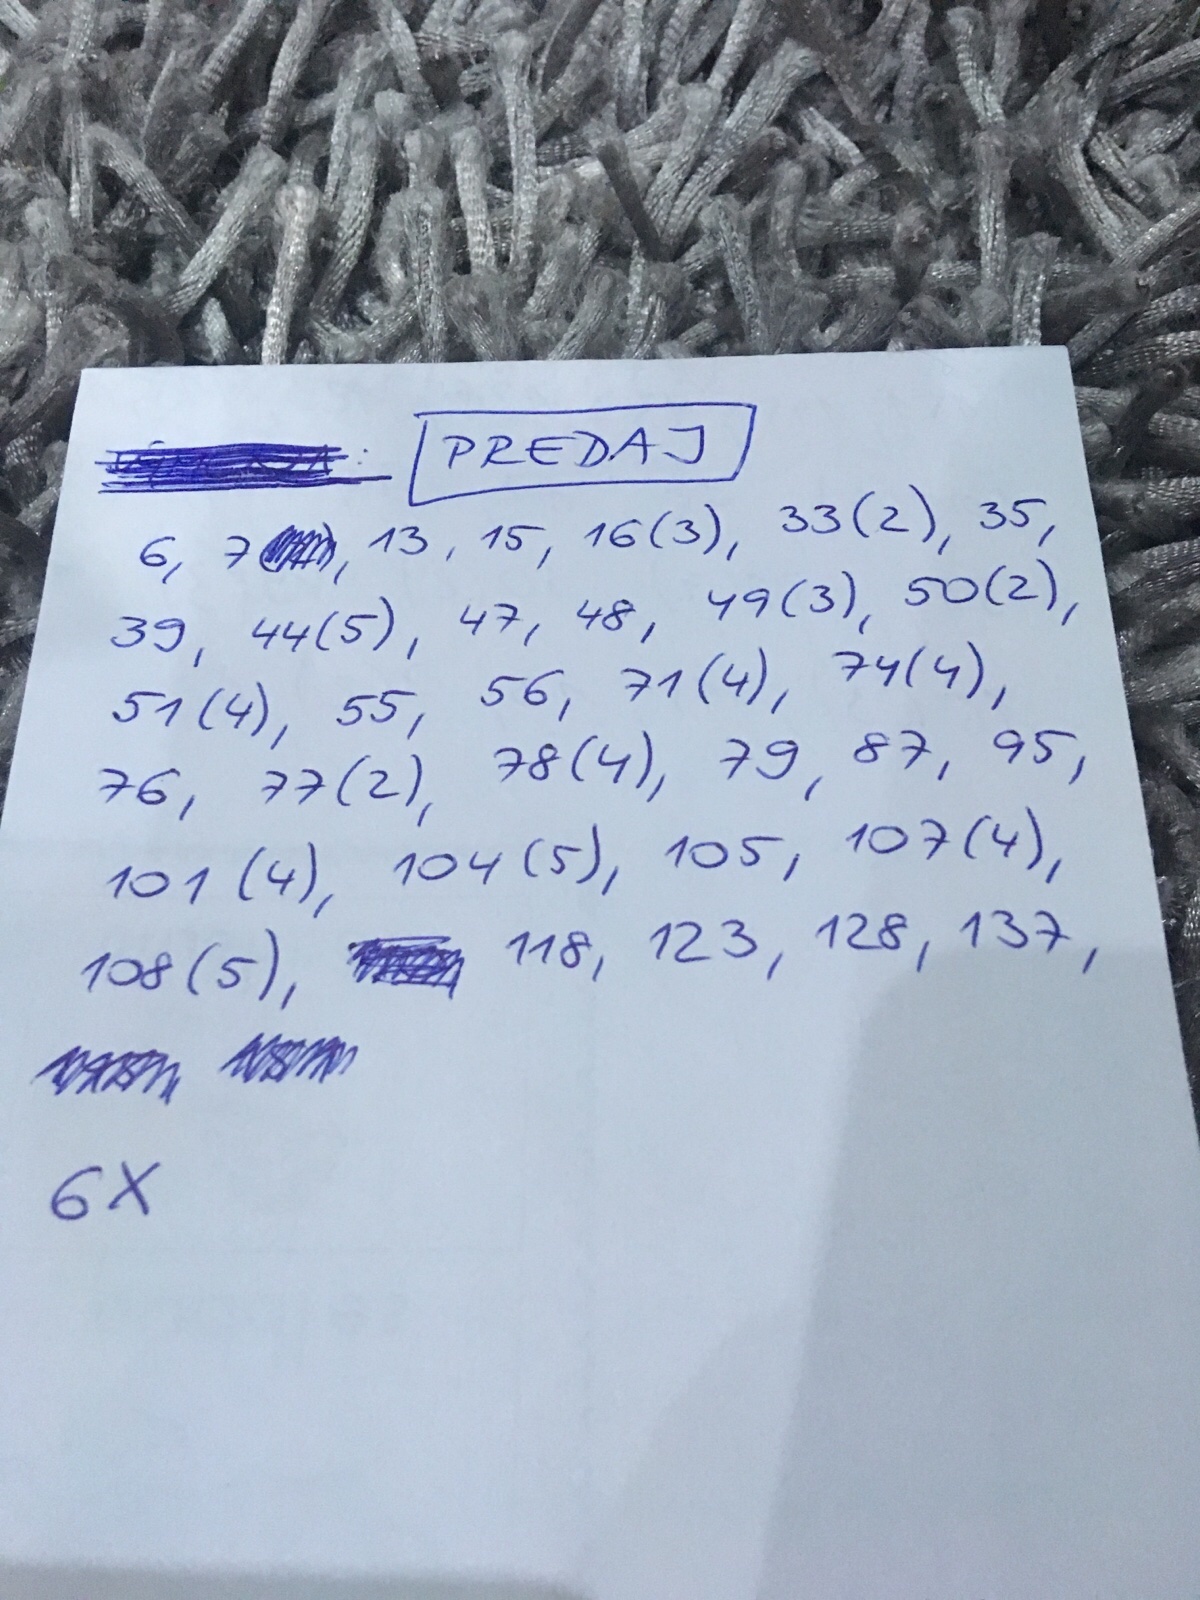 PREDAJ
6, 7, 13, 15, 16(3), 33(2), 35,
39, 44(5), 47, 48, 49(3), 50(2),
51(4), 55, 56, 71(4), 74(4),
76, 77(2), 78(4), 79, 87, 95,
101(4), 104(5), 105, 107(4),
108(5), 118, 123, 128, 137,
6X